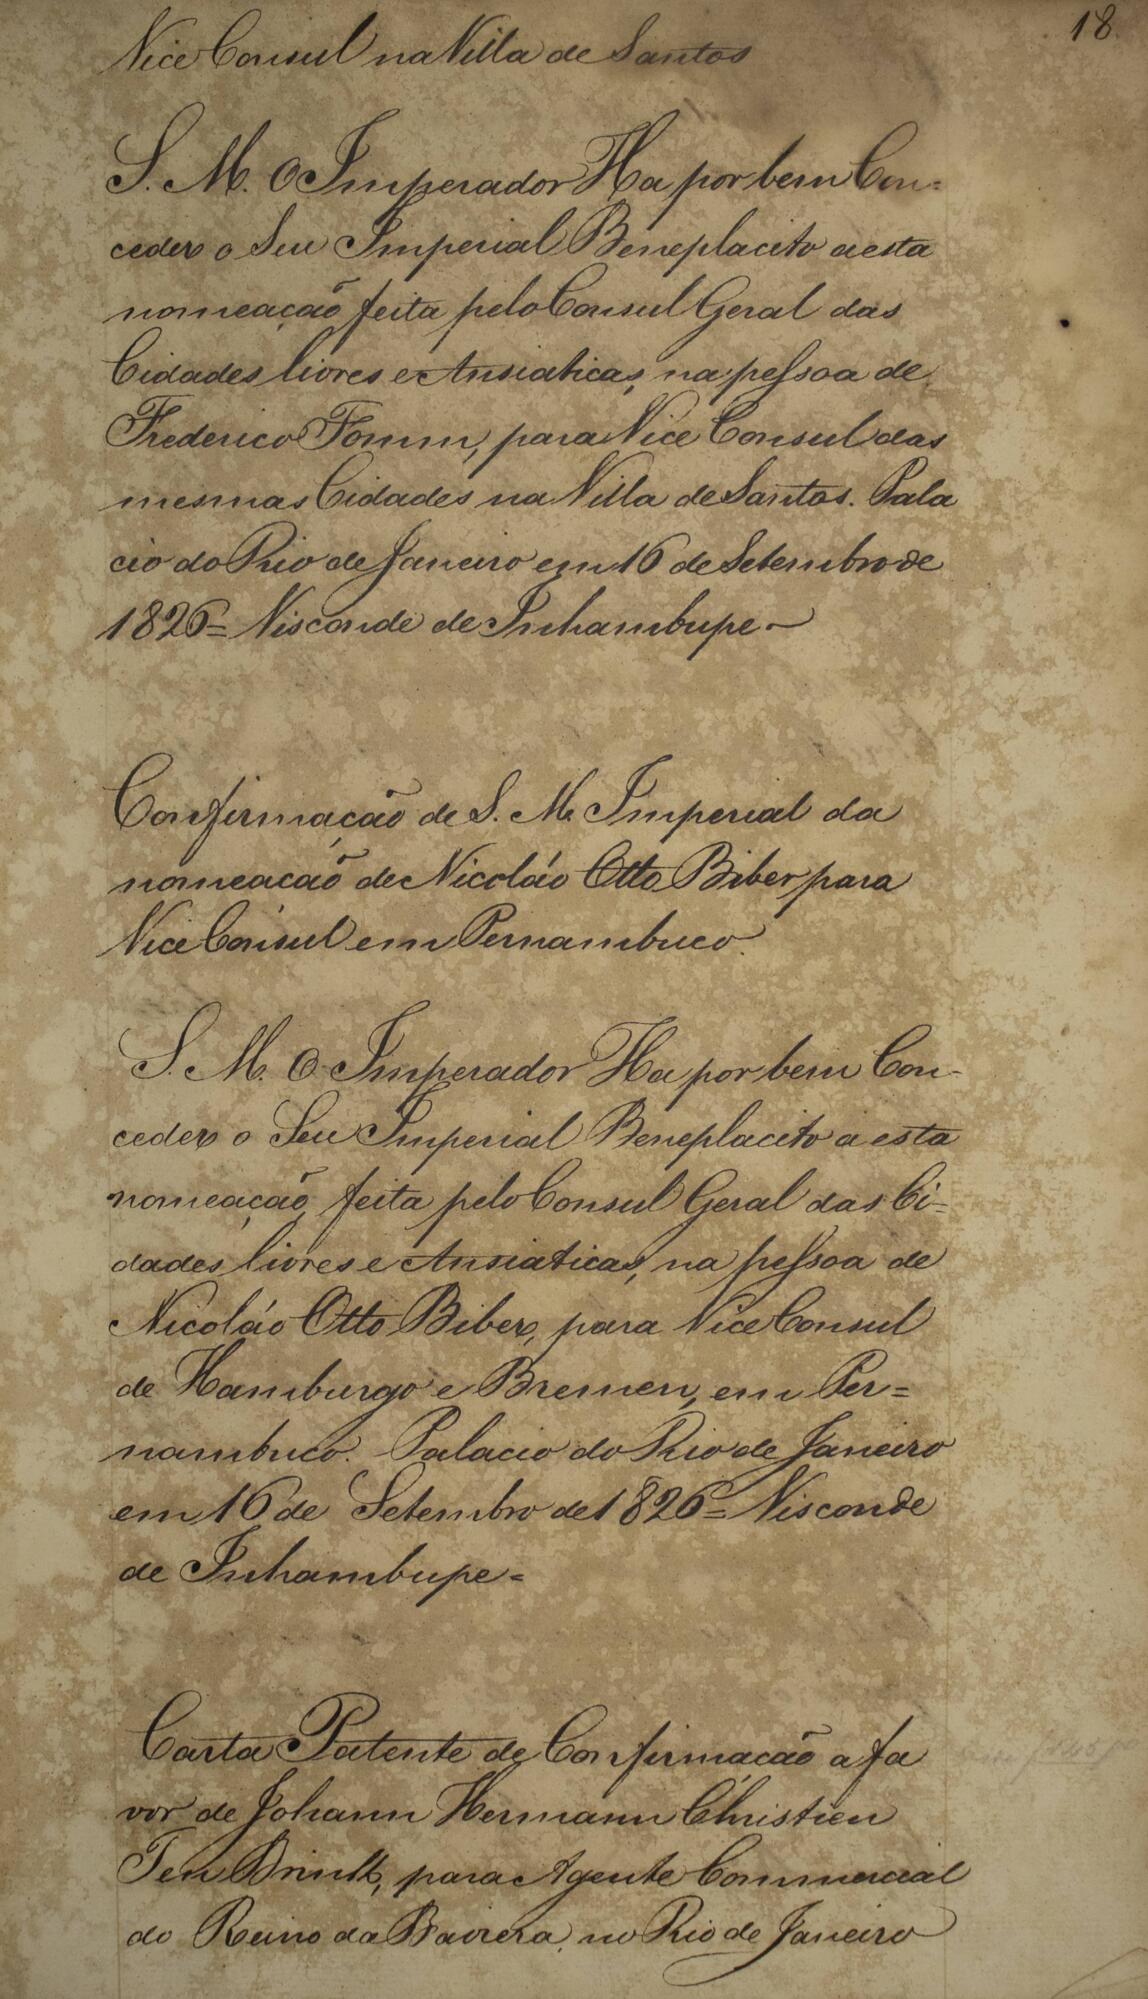 18
Vice Consul na Villa de Santos
S. M. O Imperador Ha por bem Con=
ceder o Seu Imperial Beneplacito a esta
nomeação feita pelo Consul Geral das
Cidades livres e Ansiaticas, na pessoa de
Frederico Fomm, para Vice Consul das
mesmas Cidades na Villa de Santos. Pala
cio do Rio de Janeiro em 16 de Setembro de
1826= Visconde de Inhambupe-
Confirmação de S. M. Imperial da
nomeacaõ de Nicoláo Otto Biber para
Vice Consul em Pernambuco.
S. M. O Imperador Ha por bem Con-
ceder o Seu Imperial Beneplacito a esta
nomeação, feita pelo Consul Geral das Ci=
dades livres e Ansiaticas, na pessoa de
Nicoláo Otto Biber, para Vice Consul
de Hamburgo e Bremen, em Per=
nambuco. Palacio do Rio de Janeiro
em 16 de Setembro de 1826= Visconde
de Inhambupe=
Carta Patente de Confirmação a fa
vor de Johann Hermann Christien
Ten Brink, para Agente Commercial
do Reino da Baviera, no Rio de Janeiro